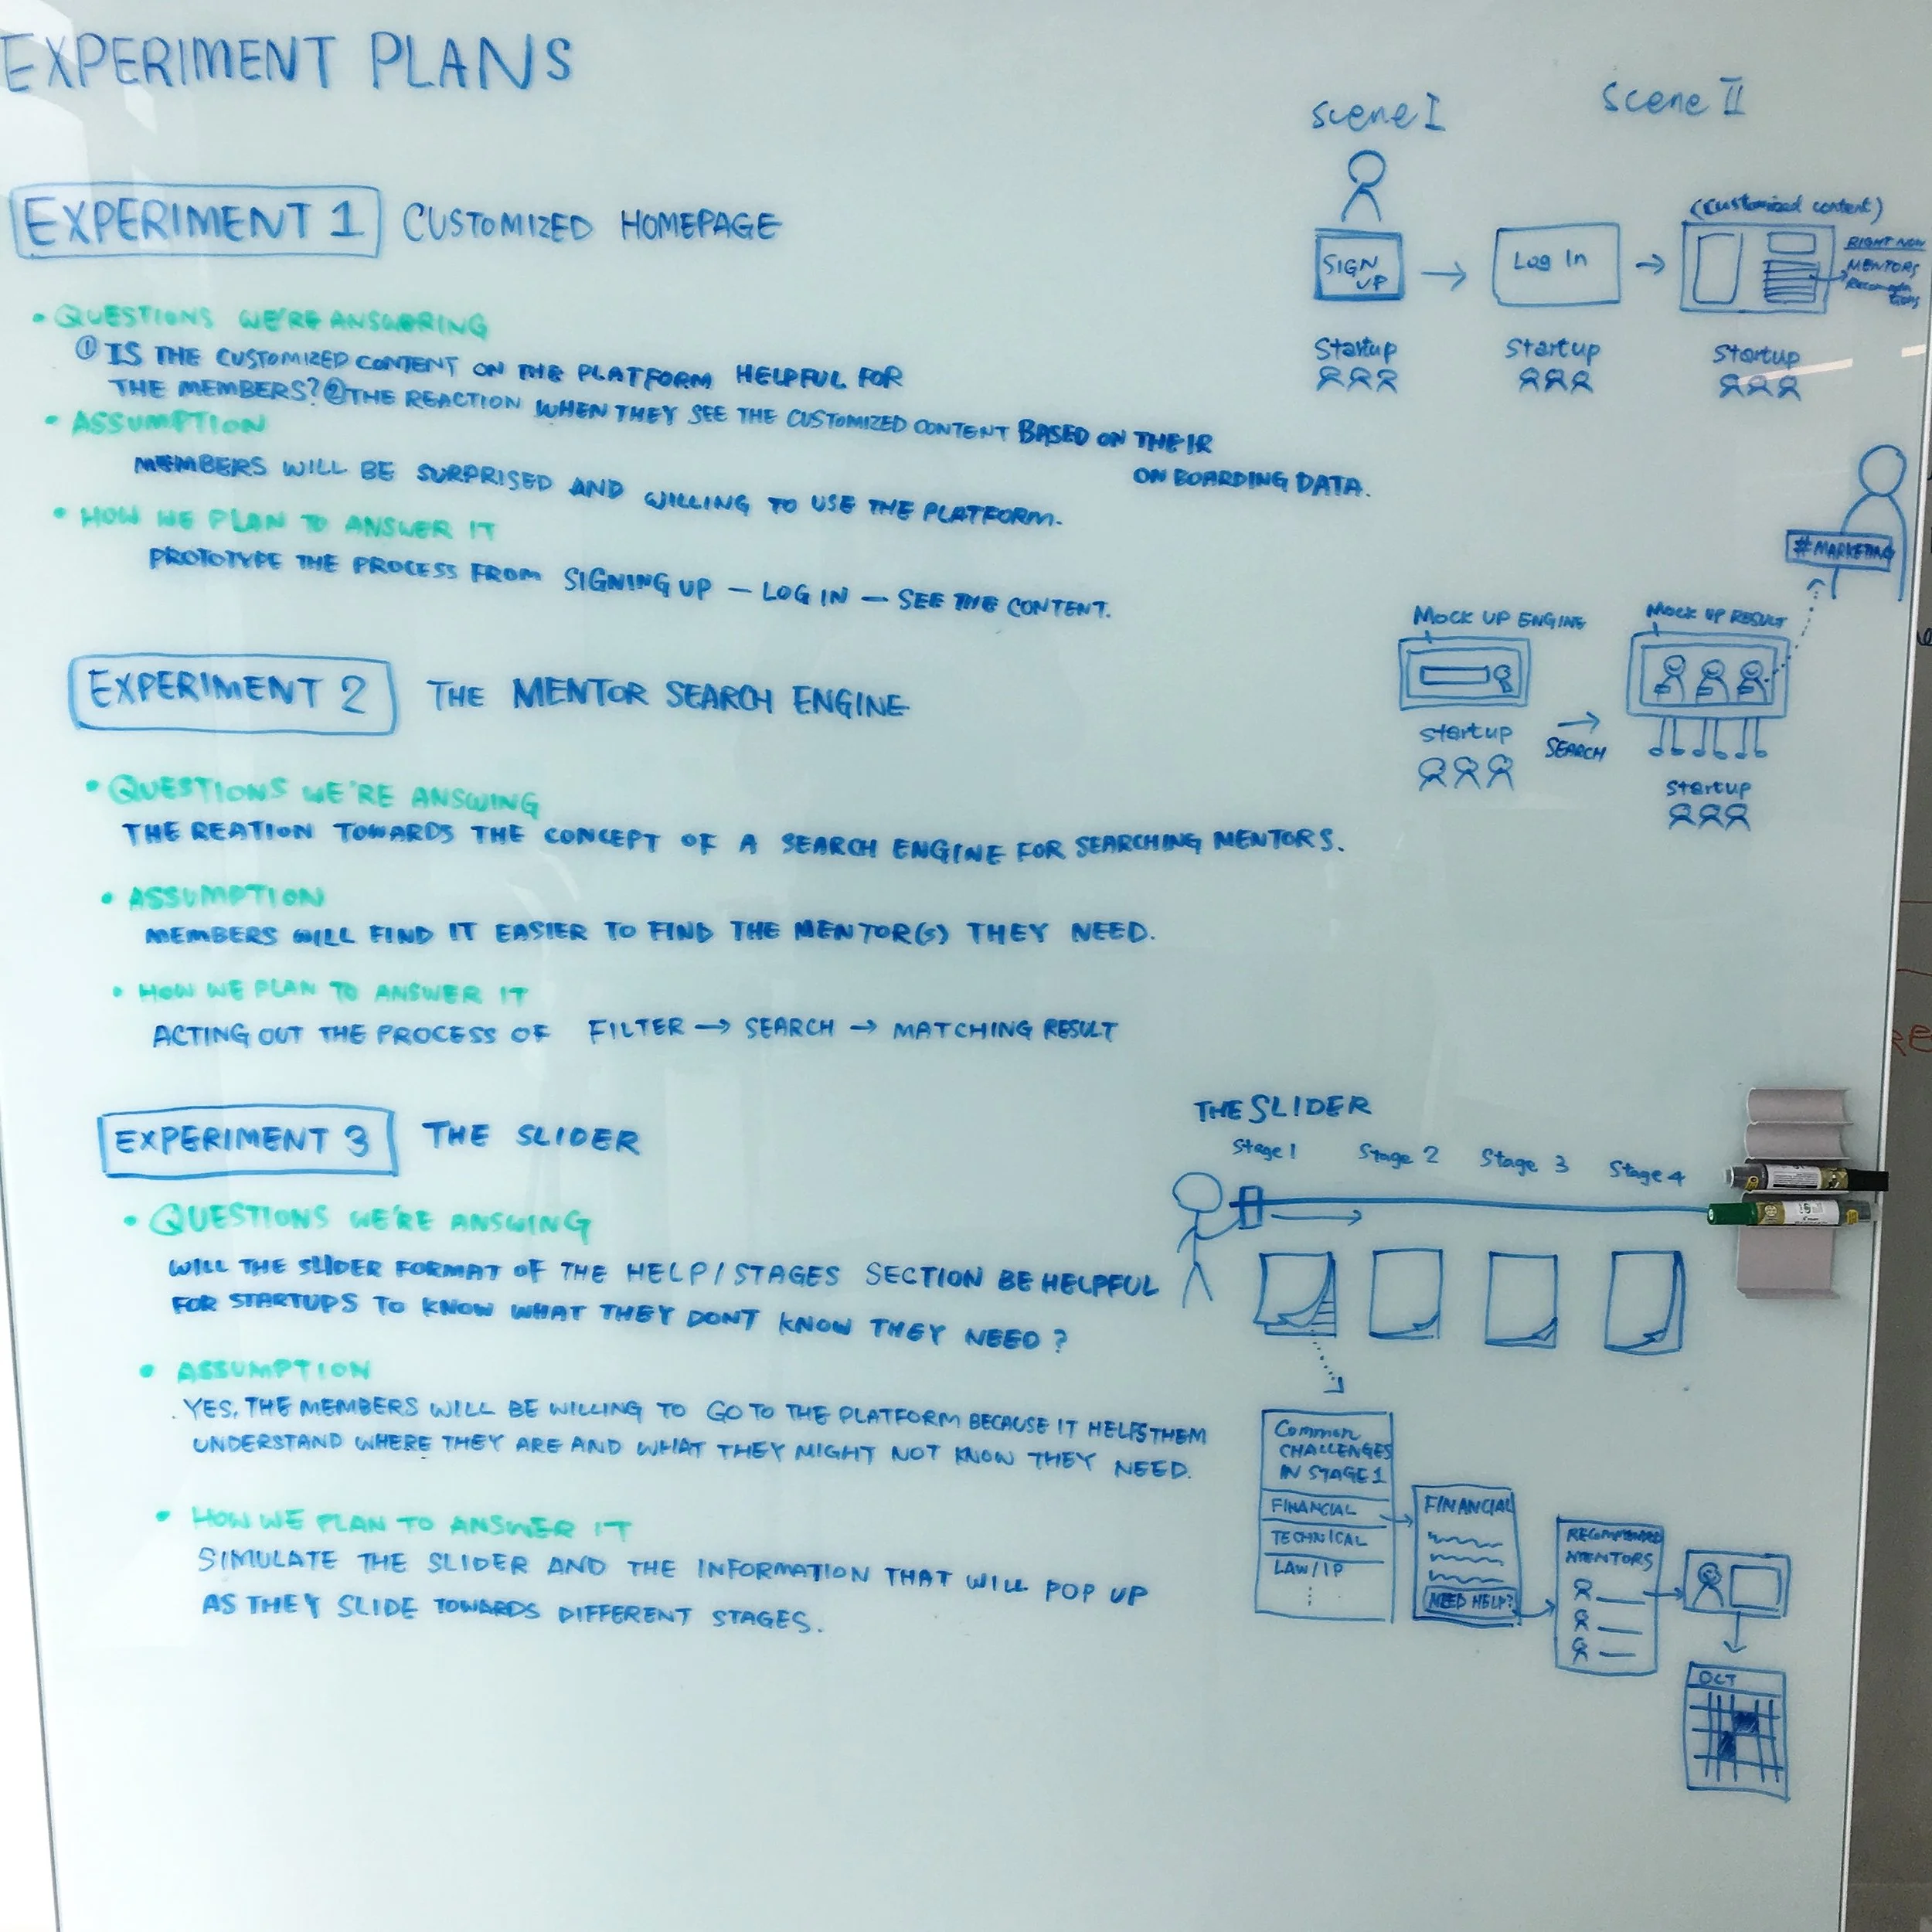 EXPERIMENT PLANS
EXPERIMENT 1 CUSTOMIZED HOMEPAGE
• QUESTIONS WE'RE ANSWORING
① IS THE CUSTOMIZED CONTENT ON THE PLATFORM HELPFUL FOR
THE MEMBERS? ② THE REACTION WHEN THEY SEE THE CUSTOMIZED CONTENT BASED ON THEIR
ON BOARDING DATA.
• ASSUMPTION
MEMBERS WILL BE SURPRISED AND WILLING TO USE THE PLATFORM.
• HOW WE PLAN TO ANSWER IT
PROTOTYPE THE PROCESS FROM SIGNING UP — LOG IN — SEE THE CONTENT.
Scene I
Scene II
SIGN
UP
→
Log In
→
(Customized content)
RIGHT NOW
MENTORS
Startup
Startup
Startup
EXPERIMENT 2 THE MENTOR SEARCH ENGINE
• QUESTIONS WE'RE ANSWING
THE REATION TOWARDS THE CONCEPT OF A SEARCH ENGINE FOR SEARCHING MENTORS.
• ASSUMPTION
MEMBERS WILL FIND IT EASIER TO FIND THE MENTOR(S) THEY NEED.
• HOW WE PLAN TO ANSWER IT
ACTING OUT THE PROCESS OF FILTER → SEARCH → MATCHING RESULT
#MARKETING
MOCK UP ENGINE
MOCK UP RESULT
Startup
→
SEARCH
Startup
EXPERIMENT 3 THE SLIDER
• QUESTIONS WE'RE ANSWING
WILL THE SLIDER FORMAT OF THE HELP/STAGES SECTION BE HELPFUL
FOR STARTUPS TO KNOW WHAT THEY DONT KNOW THEY NEED?
• ASSUMPTION
YES, THE MEMBERS WILL BE WILLING TO GO TO THE PLATFORM BECAUSE IT HELPS THEM
UNDERSTAND WHERE THEY ARE AND WHAT THEY MIGHT NOT KNOW THEY NEED.
• HOW WE PLAN TO ANSWER IT
SIMULATE THE SLIDER AND THE INFORMATION THAT WILL POP UP
AS THEY SLIDE TOWARDS DIFFERENT STAGES.
THE SLIDER
Stage 1 Stage 2 Stage 3 Stage 4
Common
CHALLENGES
IN STAGE 1
FINANCIAL
TECHNICAL
LAW/IP
FINANCIAL
NEED HELP?
RECOMMENDED
MENTORS
OCT